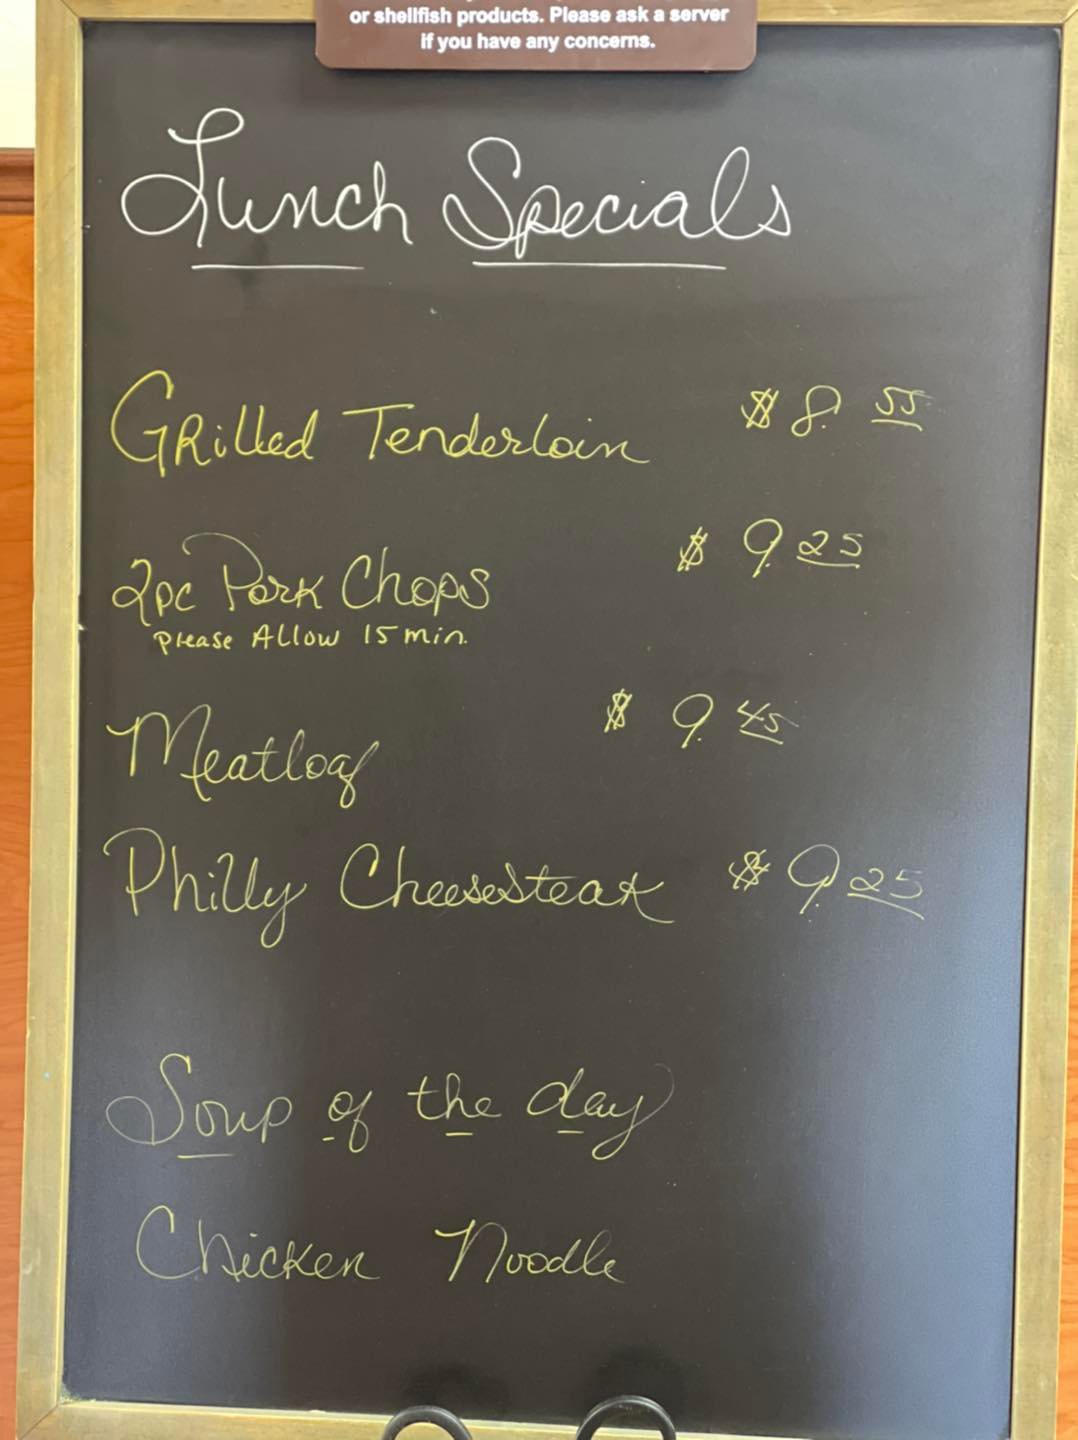 or shellfish products. Please ask a server
if you have any concerns.
Lunch Specials
Grilled Tenderloin $8.55
2pc Pork Chops $9.25
Please Allow 15 min.
Meatloaf $9.45
Philly Cheesesteak $9.25
Soup of the day
Chicken Noodle